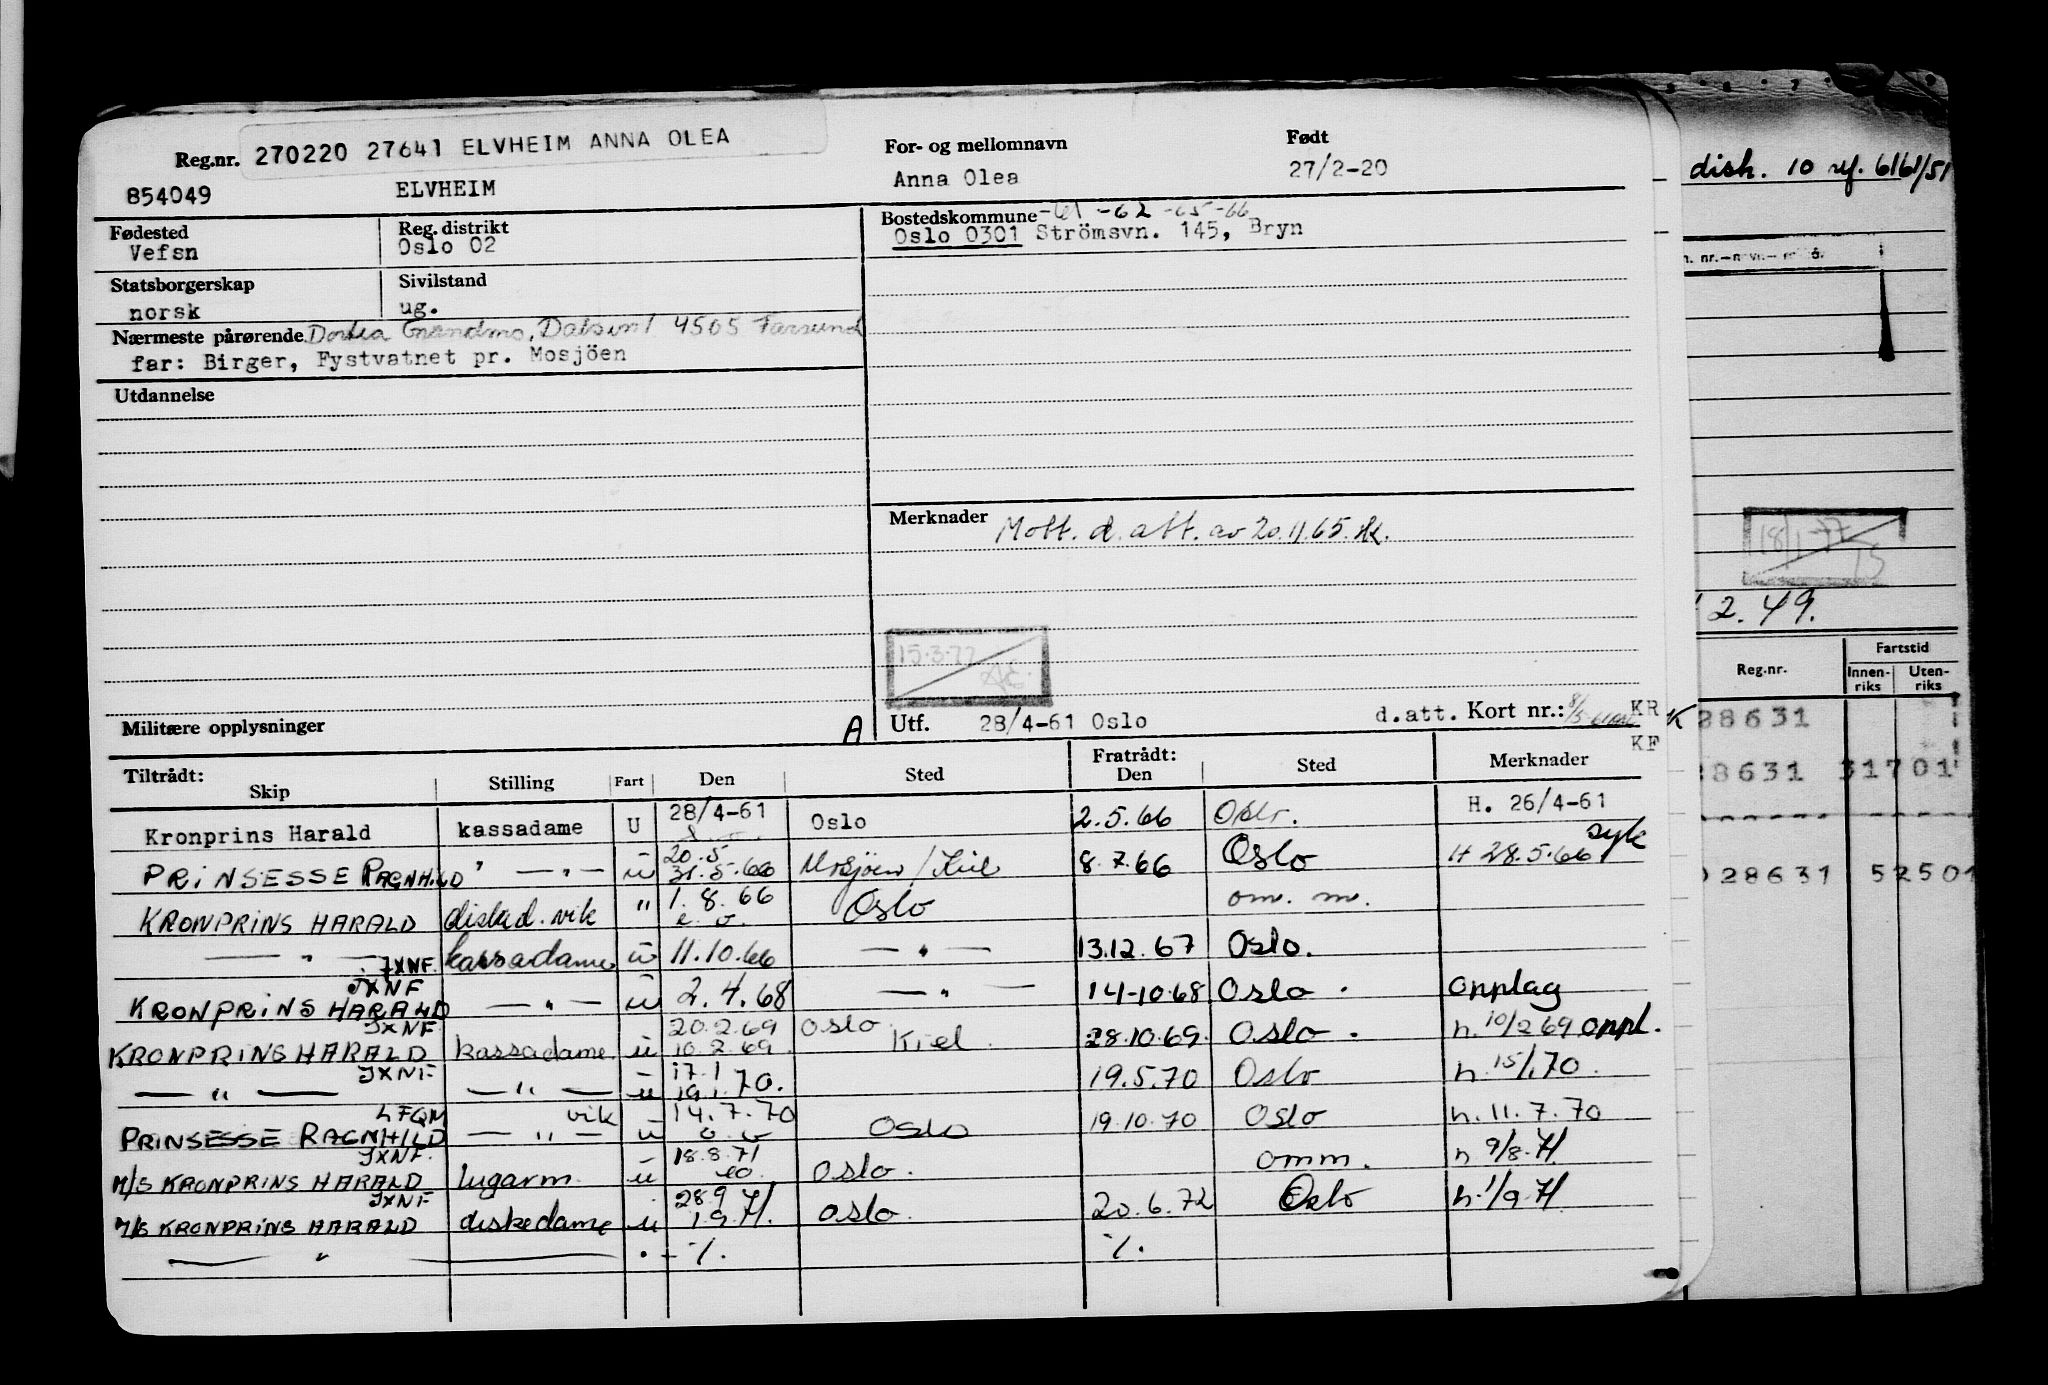 Reg.nr. 270220 27641 ELVHEIM ANNA OLEA For- og mellomnavn Født
854049 ELVHEIM Anna Olea 27/2-20
Fødested Reg. distrikt Bostedskommune -61 -62 -65 -66
Vefsn Oslo 02 Oslo 0301 Strömsvn. 145, Bryn
Statsborgerskap Sivilstand
norsk ug.
Nærmeste pårørende 4505 Farsund
far: Birger, Fystvatnet pr. Mosjöen
Utdannelse
Merknader Mott. d. att. av 20.11.65.
15.3.77
Militære opplysninger A Utf. 28/4-61 Oslo d.att. Kort nr.: KR
KF
Tiltrådt: Fratrådt:
Skip Stilling Fart Den Sted Den Sted Merknader
Kronprins Harald kassadame U 28/4-61 Oslo 2.5.66 Oslo. H. 26/4-61
PRINSESSE RAGNHILD " — " — u 20.5 31.5.66 Mosjøen / Kiel 8.7.66 Oslo H 28.5.66 syk
KRONPRINS HARALD diskd. vik " 1.8.66 Oslo om. m.
— " — JXNF. kassadame u 11.10.66 — " — 13.12.67 Oslo.
JXNF
KRONPRINS HARALD — " — u 2.4.68 — " — 14-10-68 Oslo. opplag
JXNF 20.2.69 Oslo
KRONPRINS HARALD kassadame. u 10.2.69. Kiel. 28.10.69. Oslo. h. 10/2 69 oppl.
JXNF 17.1
— " — — " — u 19.1.70. 19.5.70 Oslo h. 15/1.70.
LFQM vik 14.7.70
PRINSESSE RAGNHILD — " — u Oslo 19.10.70 Oslo h. 11.7.70
JXNF. 18.8.71
M/S KRONPRINS HARALD lugarm. u Oslo. omm. h 9/8.71.
JXNF 28.9.71
M/S KRONPRINS HARALD diskedame u 1.9.71. Oslo. 20.6.72 Oslo h. 1/9.71
— " — ·/. ·/.
disk. 10 rf. 6161/51
18/1-77
2.49.
Reg.nr. Fartstid
Innen-riks Uten-riks
28631
28631 31701
28631 52501